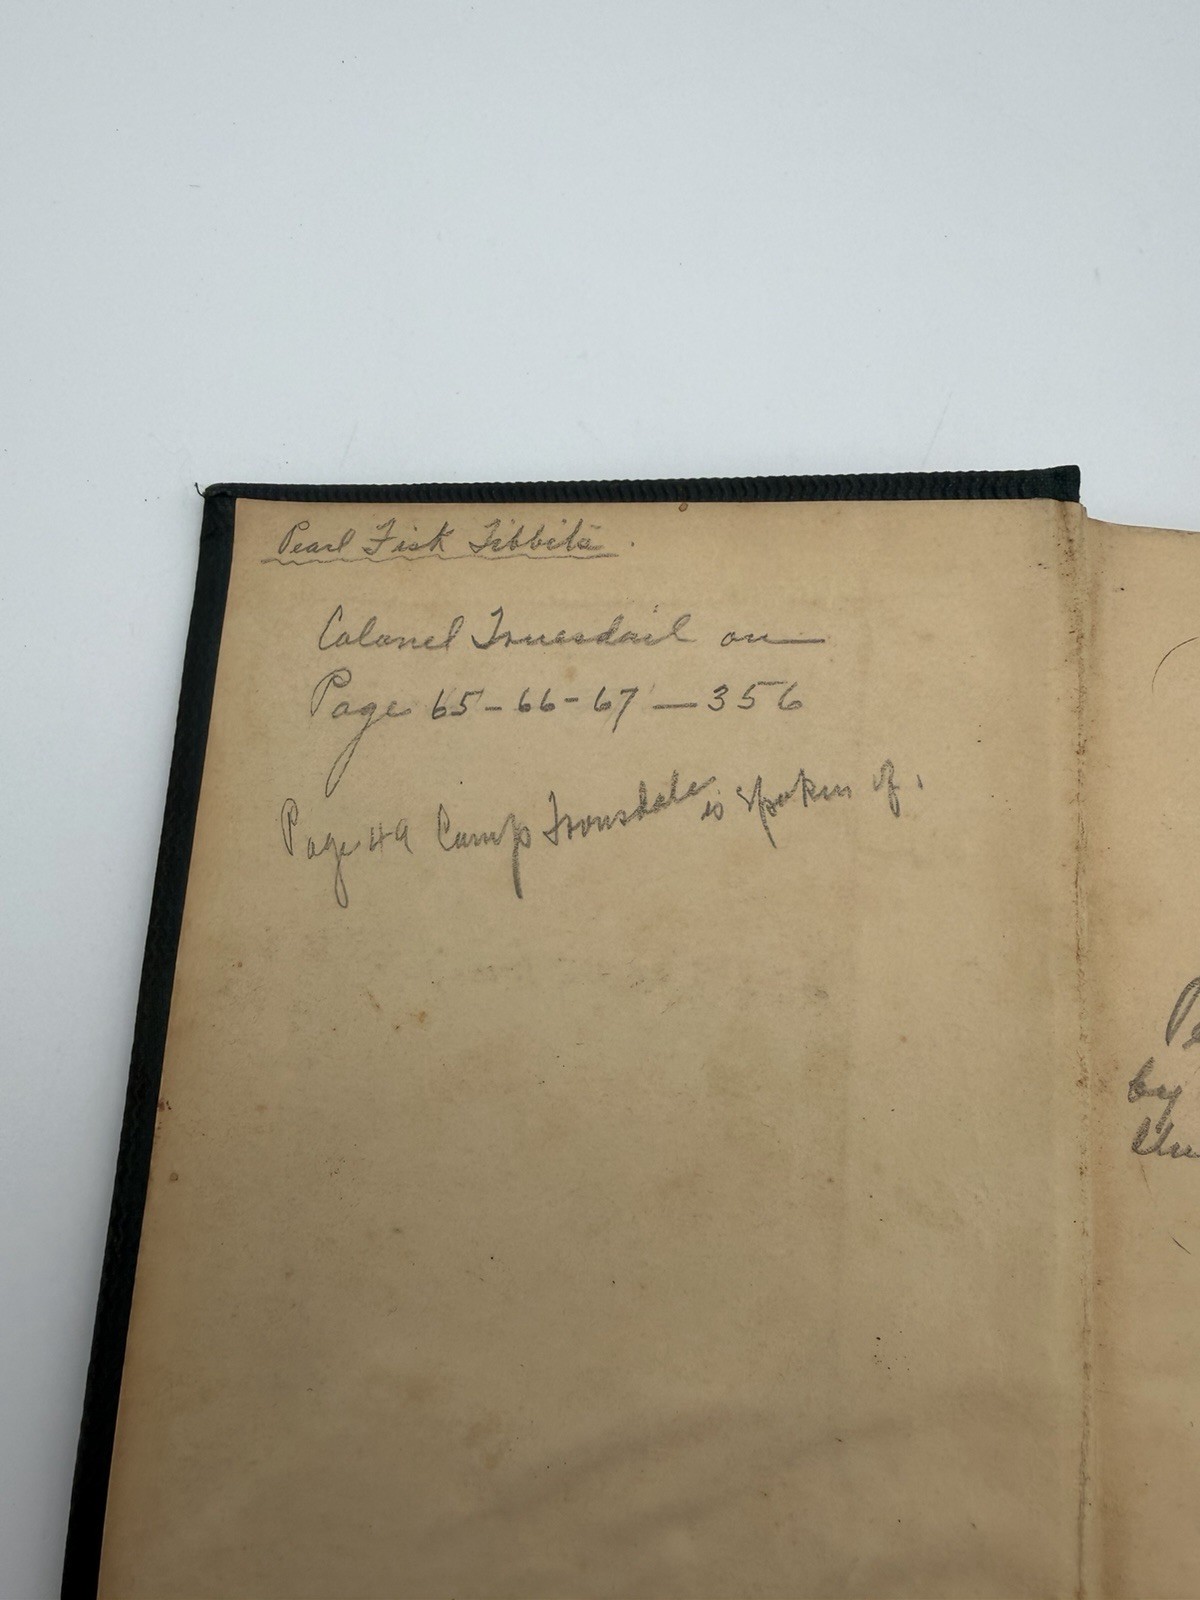 Pearl Fisk Tibbits.
Colonel Truesdail on
Page 65-66-67 — 356
Page 49 Camp Trousdale is spoken of.
by